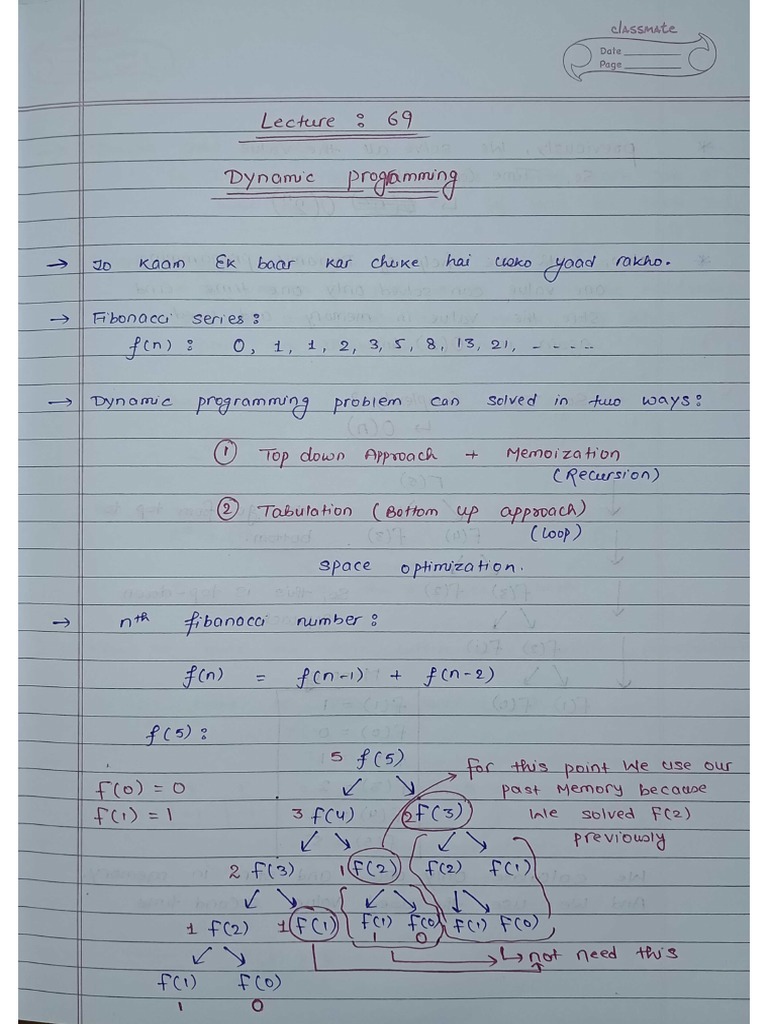 classmate
Date
Page
Lecture : 69
Dynamic programming
→ Jo kaam Ek baar kar chuke hai usko yaad rakho.
→ Fibonacci series :
f(n) : 0, 1, 1, 2, 3, 5, 8, 13, 21, - - - - ..
→ Dynamic programming problem can solved in two ways :
① Top down Approach + Memoization
(Recursion)
② Tabulation (Bottom up approach)
(Loop)
space optimization.
→ nth fibonacci number :
f(n) = f(n-1) + f(n-2)
f(5) :
5 f(5)
for this point We use our
f(0) = 0
past Memory because
f(1) = 1
3 f(4) 2 f(3)
We solved F(2)
previously
2 f(3) 1 f(2) f(2) f(1)
1 f(2) 1 f(1) f(1) f(0) f(1) f(0)
1 0
↳ not need this
f(1) f(0)
1 0